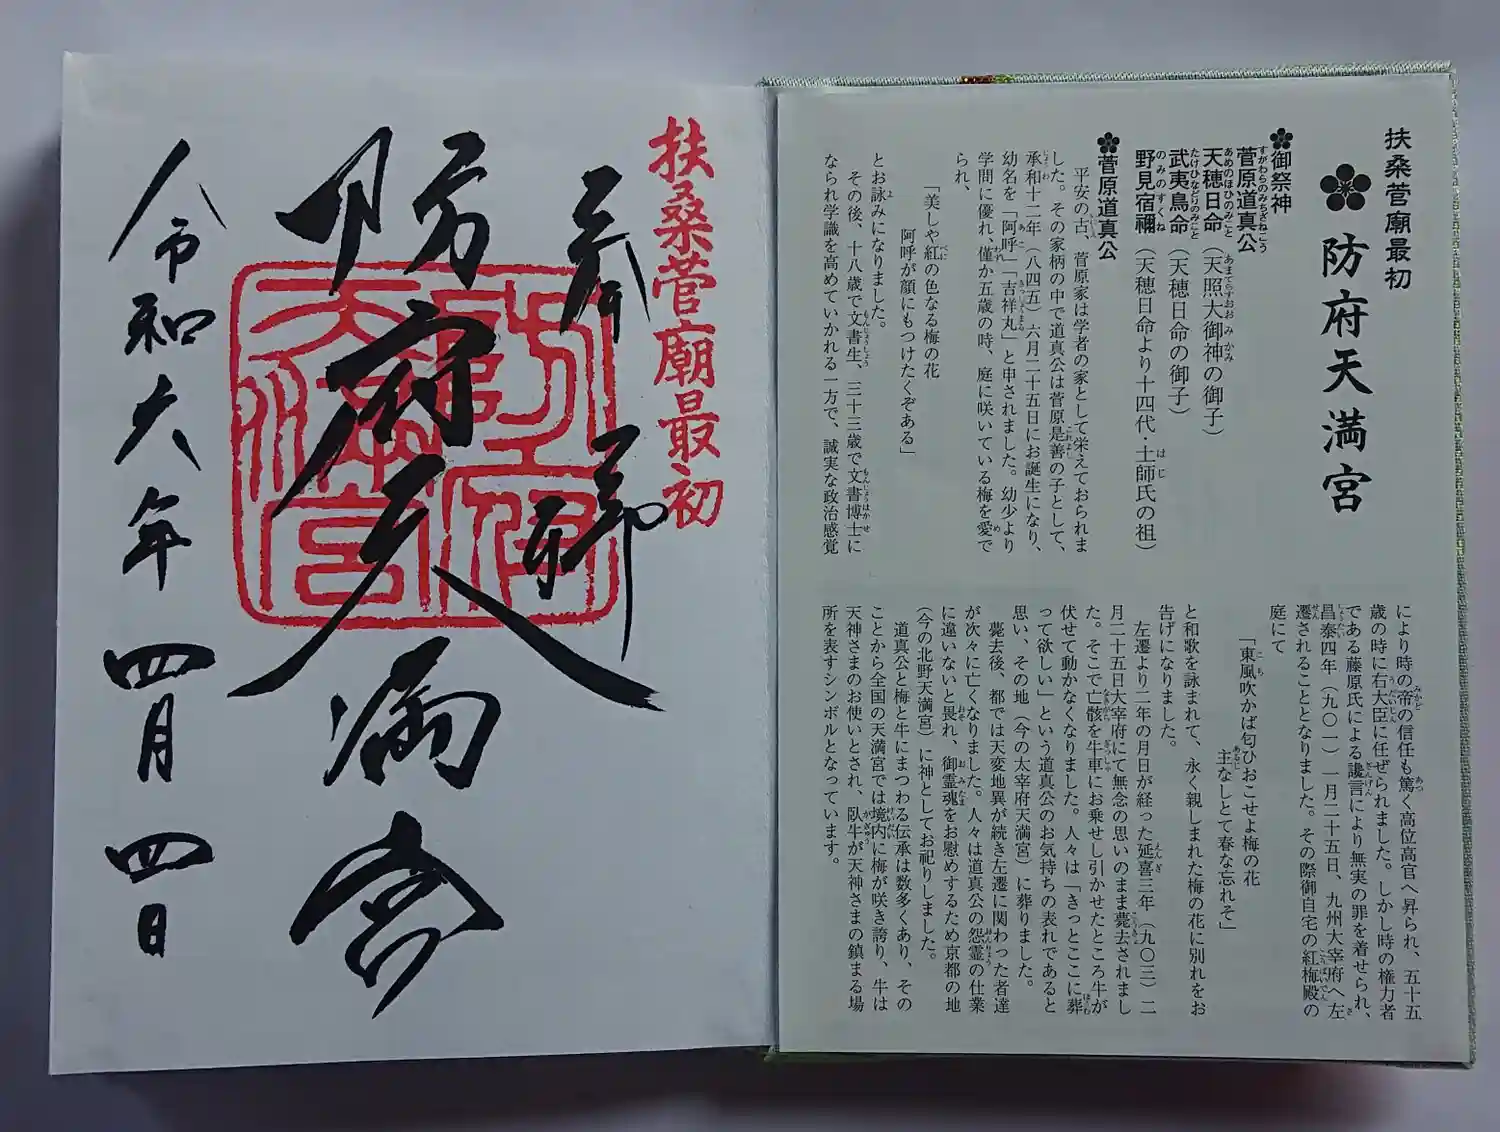 扶桑菅廟最初
防府天満宮
御祭神
菅原道真公
天穂日命(天照大御神の御子)
武夷鳥命(天穂日命の御子)
野見宿禰(天穂日命より十四代・土師氏の祖)
菅原道真公
平安の古、菅原家は学者の家として栄えておられま
した。その家柄の中で道真公は菅原是善の子として、
承和十二年(八四五)六月二十五日にお誕生になり、
幼名を「阿呼」「吉祥丸」と申されました。幼少より
学問に優れ、僅か五歳の時、庭に咲いている梅を愛で
られ、
「美しや紅の色なる梅の花
阿呼が顔にもつけたくぞある」
とお詠みになりました。
その後、十八歳で文書生、三十三歳で文書博士に
なられ学識を高めていかれる一方で、誠実な政治感覚
により時の帝の信任も篤く高位高官へ昇られ、五十五
歳の時に右大臣に任ぜられました。しかし時の権力者
である藤原氏による讒言により無実の罪を着せられ、
昌泰四年(九〇一)一月二十五日、九州大宰府へ左
遷されることとなりました。その際御自宅の紅梅殿の
庭にて
「東風吹かば匂ひおこせよ梅の花
主なしとて春な忘れそ」
と和歌を詠まれて、永く親しまれた梅の花に別れをお
告げになりました。
左遷より二年の月日が経った延喜三年(九〇三)二
月二十五日大宰府にて無念の思いのまま薨去されまし
た。そこで亡骸を牛車にお乗せし引かせたところ牛が
伏せて動かなくなりました。人々は「きっとここに葬
って欲しい」という道真公のお気持ちの表れであると
思い、その地(今の太宰府天満宮)に葬りました。
薨去後、都では天変地異が続き左遷に関わった者達
が次々に亡くなりました。人々は道真公の怨霊の仕業
に違いないと畏れ、御霊魂をお慰めするため京都の地
(今の北野天満宮)に神としてお祀りしました。
道真公と梅と牛にまつわる伝承は数多くあり、その
ことから全国の天満宮では境内に梅が咲き誇り、牛は
天神さまのお使いとされ、臥牛が天神さまの鎮まる場
所を表すシンボルとなっています。
扶桑菅廟最初
奉拝
防府天満宮
防府天満宮
令和六年四月四日